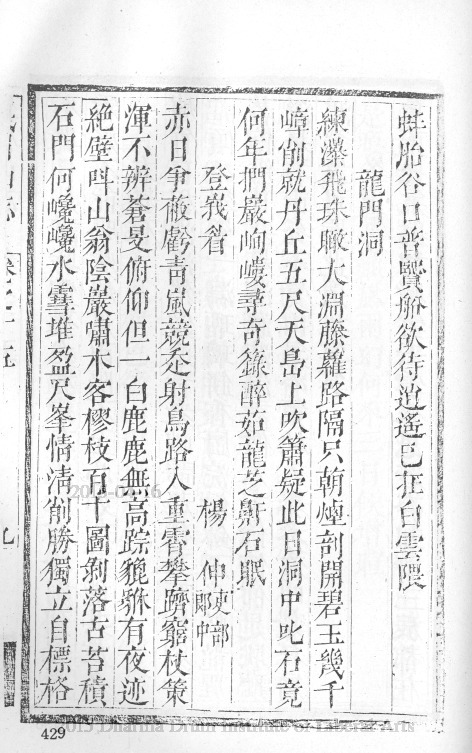 蚌胎谷口普賢船欲待逍遙已在白雲隈
龍門洞
練藻飛珠瞰大淵藤蘿路隔只朝煙剖開碧玉幾千
嶂削就丹丘五尺天島上吹簫疑此日洞中叱石竟
何年捫巖峋嶁尋奇籙醉茹龍芝鼾石眠
登峩眉 楊 伸吏部郎中
赤日爭蔽虧青嵐競禿射鳥路入重霄攀躋窮杖策
渾不辨蒼旻俯仰但一白鹿鹿無高踪貔貅有夜迹
絶壁呌山翁陰巖嘯木客樛枝百十圖剝落古苔積
石門何巉巉水雪堆盈尺峯情清削勝獨立自標格
山志 卷之十五 九
429
2013 Dharma Drum Institute of Liberal Arts